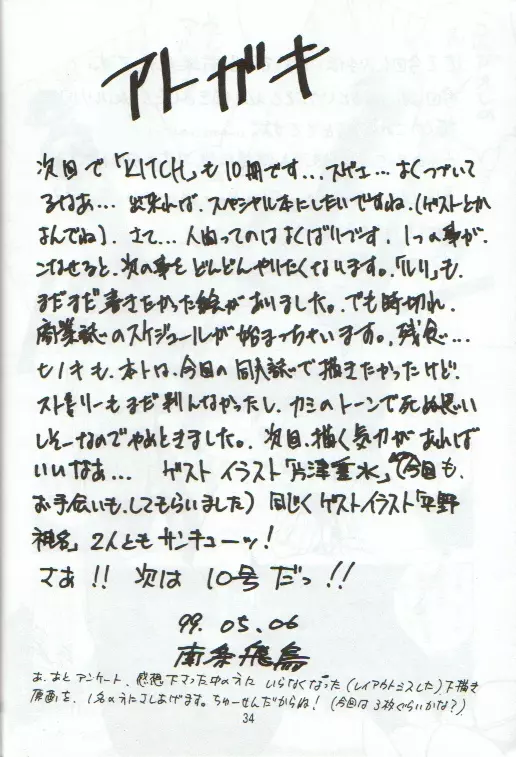 アトガキ
次回で「KITCH」も10冊です…スゲェ…よくつづいて
るなあ…出来れば、スペシャル本にしたいですね、(ゲストとか
よんでね)。さて…人間ってのはよくばりです。1つの事が、
こなせると、次の事をどんどんやりたくなります。「ルリ」も、
まだまだ書きたかった絵がありました。でも時切れ、
商業誌のスケジュールが始まっちゃいます。残念…
ヒノキも、本トは、今回の同人誌で描きたかったけど!
ストーリーもまだ判んなかったし、カミのトーンで死ぬ思い
しそーなのでやめときました。次回、描く気力があれば
いいなあ… ゲスト イラスト「片津重水」(今回も、
お手伝いも、してもらいました) 同じくゲストイラスト「平野
神名」2人ともサンキューーッ!
さあ!! 次は 10号 だっ!!
99. 05. 06
南条飛鳥
あ、あとアンケート、感想下さった中の方に いらなくなった(レイアウトミスした)下描き
原画を、1名の方にさしあげます。ちゅーせんだからね! (今回は3枚ぐらいかな?)
34